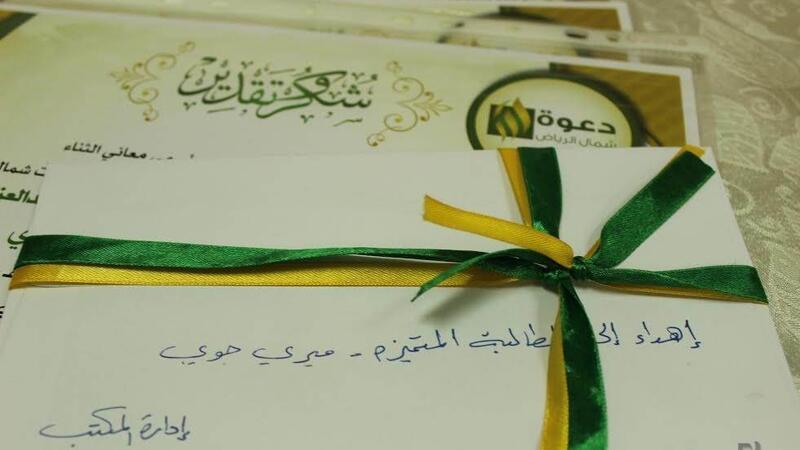 شكر وتقدير
دعوة
شمال الرياض
معاني الثناء
إهداء إلى الطالبة المتميزه - ميري جوي
إدارة المكتب